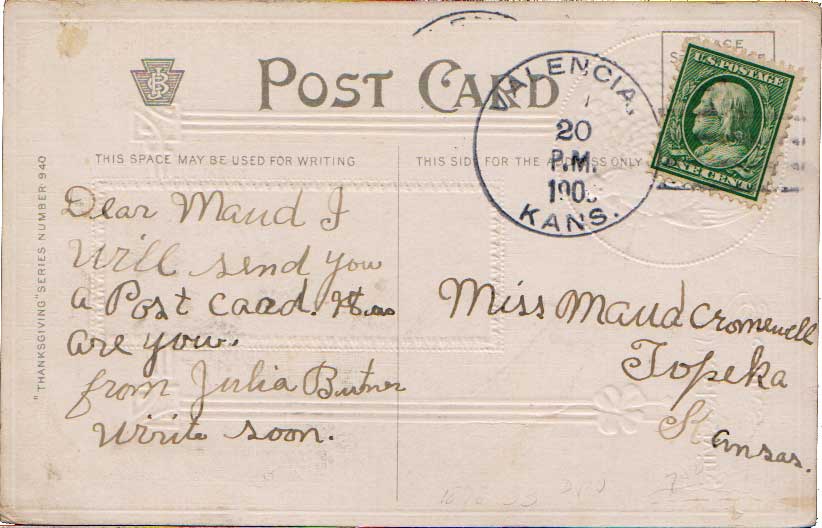 POST CARD
VALENCIA,
20
P.M.
190
KANS.
U.S. POSTAGE
ONE CENT
THIS SPACE MAY BE USED FOR WRITING
THIS SIDE FOR THE ADDRESS ONLY
"THANKSGIVING" SERIES NUMBER 940
Dear Maud I
Will send you
a Post caad.
are you.
from Julia
Write soon.
Miss Maud Cromewell
Topeka
Kansas.